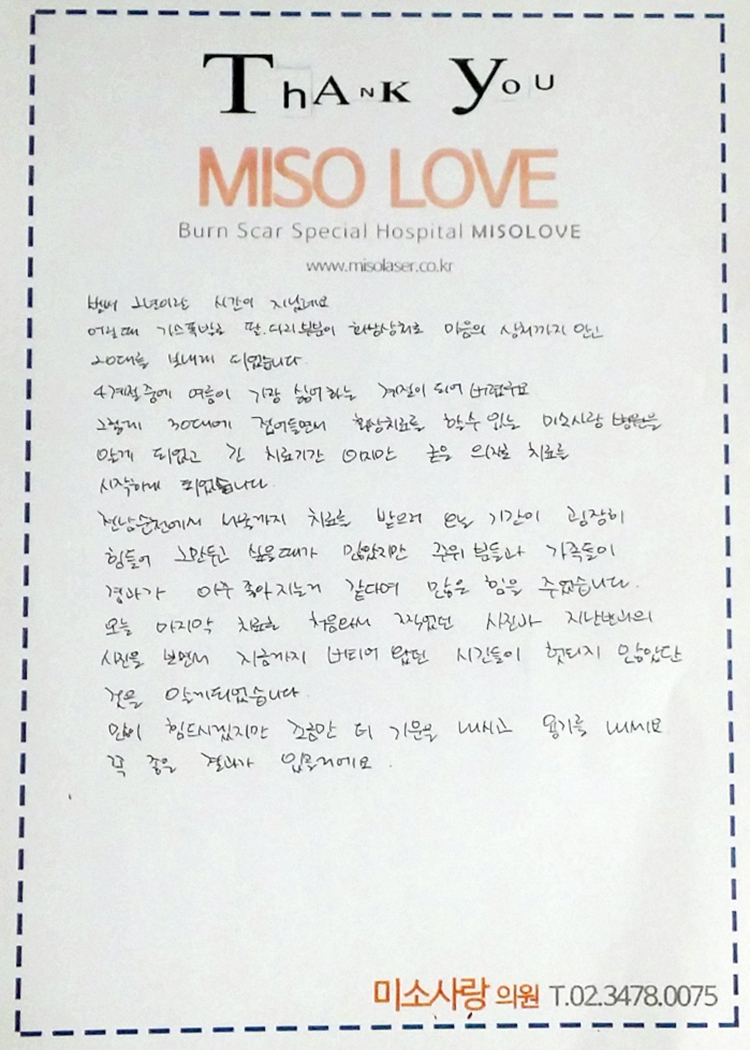 THANK YOU
MISO LOVE
Burn Scar Special Hospital MISOLOVE
www.misolaser.co.kr
벌써 2년이란 시간이 지났네요
어릴때 가스폭발로 팔.다리부분이 화상상처로 마음의 상처까지 안고
20대를 보내게 되었습니다.
4계절중에 여름이 가장 싫어하는 계절이 되어 버렸구요
그렇게 30대에 접어들면서 화상치료를 할수있는 미소사랑 병원을
알게 되었고 긴 치료기간 이지만 굳은 의지로 치료를
시작하게 되었습니다.
전남순천에서 서울까지 치료를 받으러 오는 기간이 굉장히
힘들어 그만두고 싶을때가 많았지만 주위 분들과 가족들이
경과가 아주 좋아지는거 같다며 많은 힘을 주었습니다.
오늘 마지막 치료후 처음와서 찍었던 사진과 지난번과의
사진을 보면서 지금까지 버티어 왔던 시간들이 헛되지 않았단
것을 알게되었습니다.
많이 힘드시겠지만 조금만 더 기운을 내시고 용기를 내세요
꼭 좋은 결과가 있을거에요.
미소사랑 의원 T.02.3478.0075